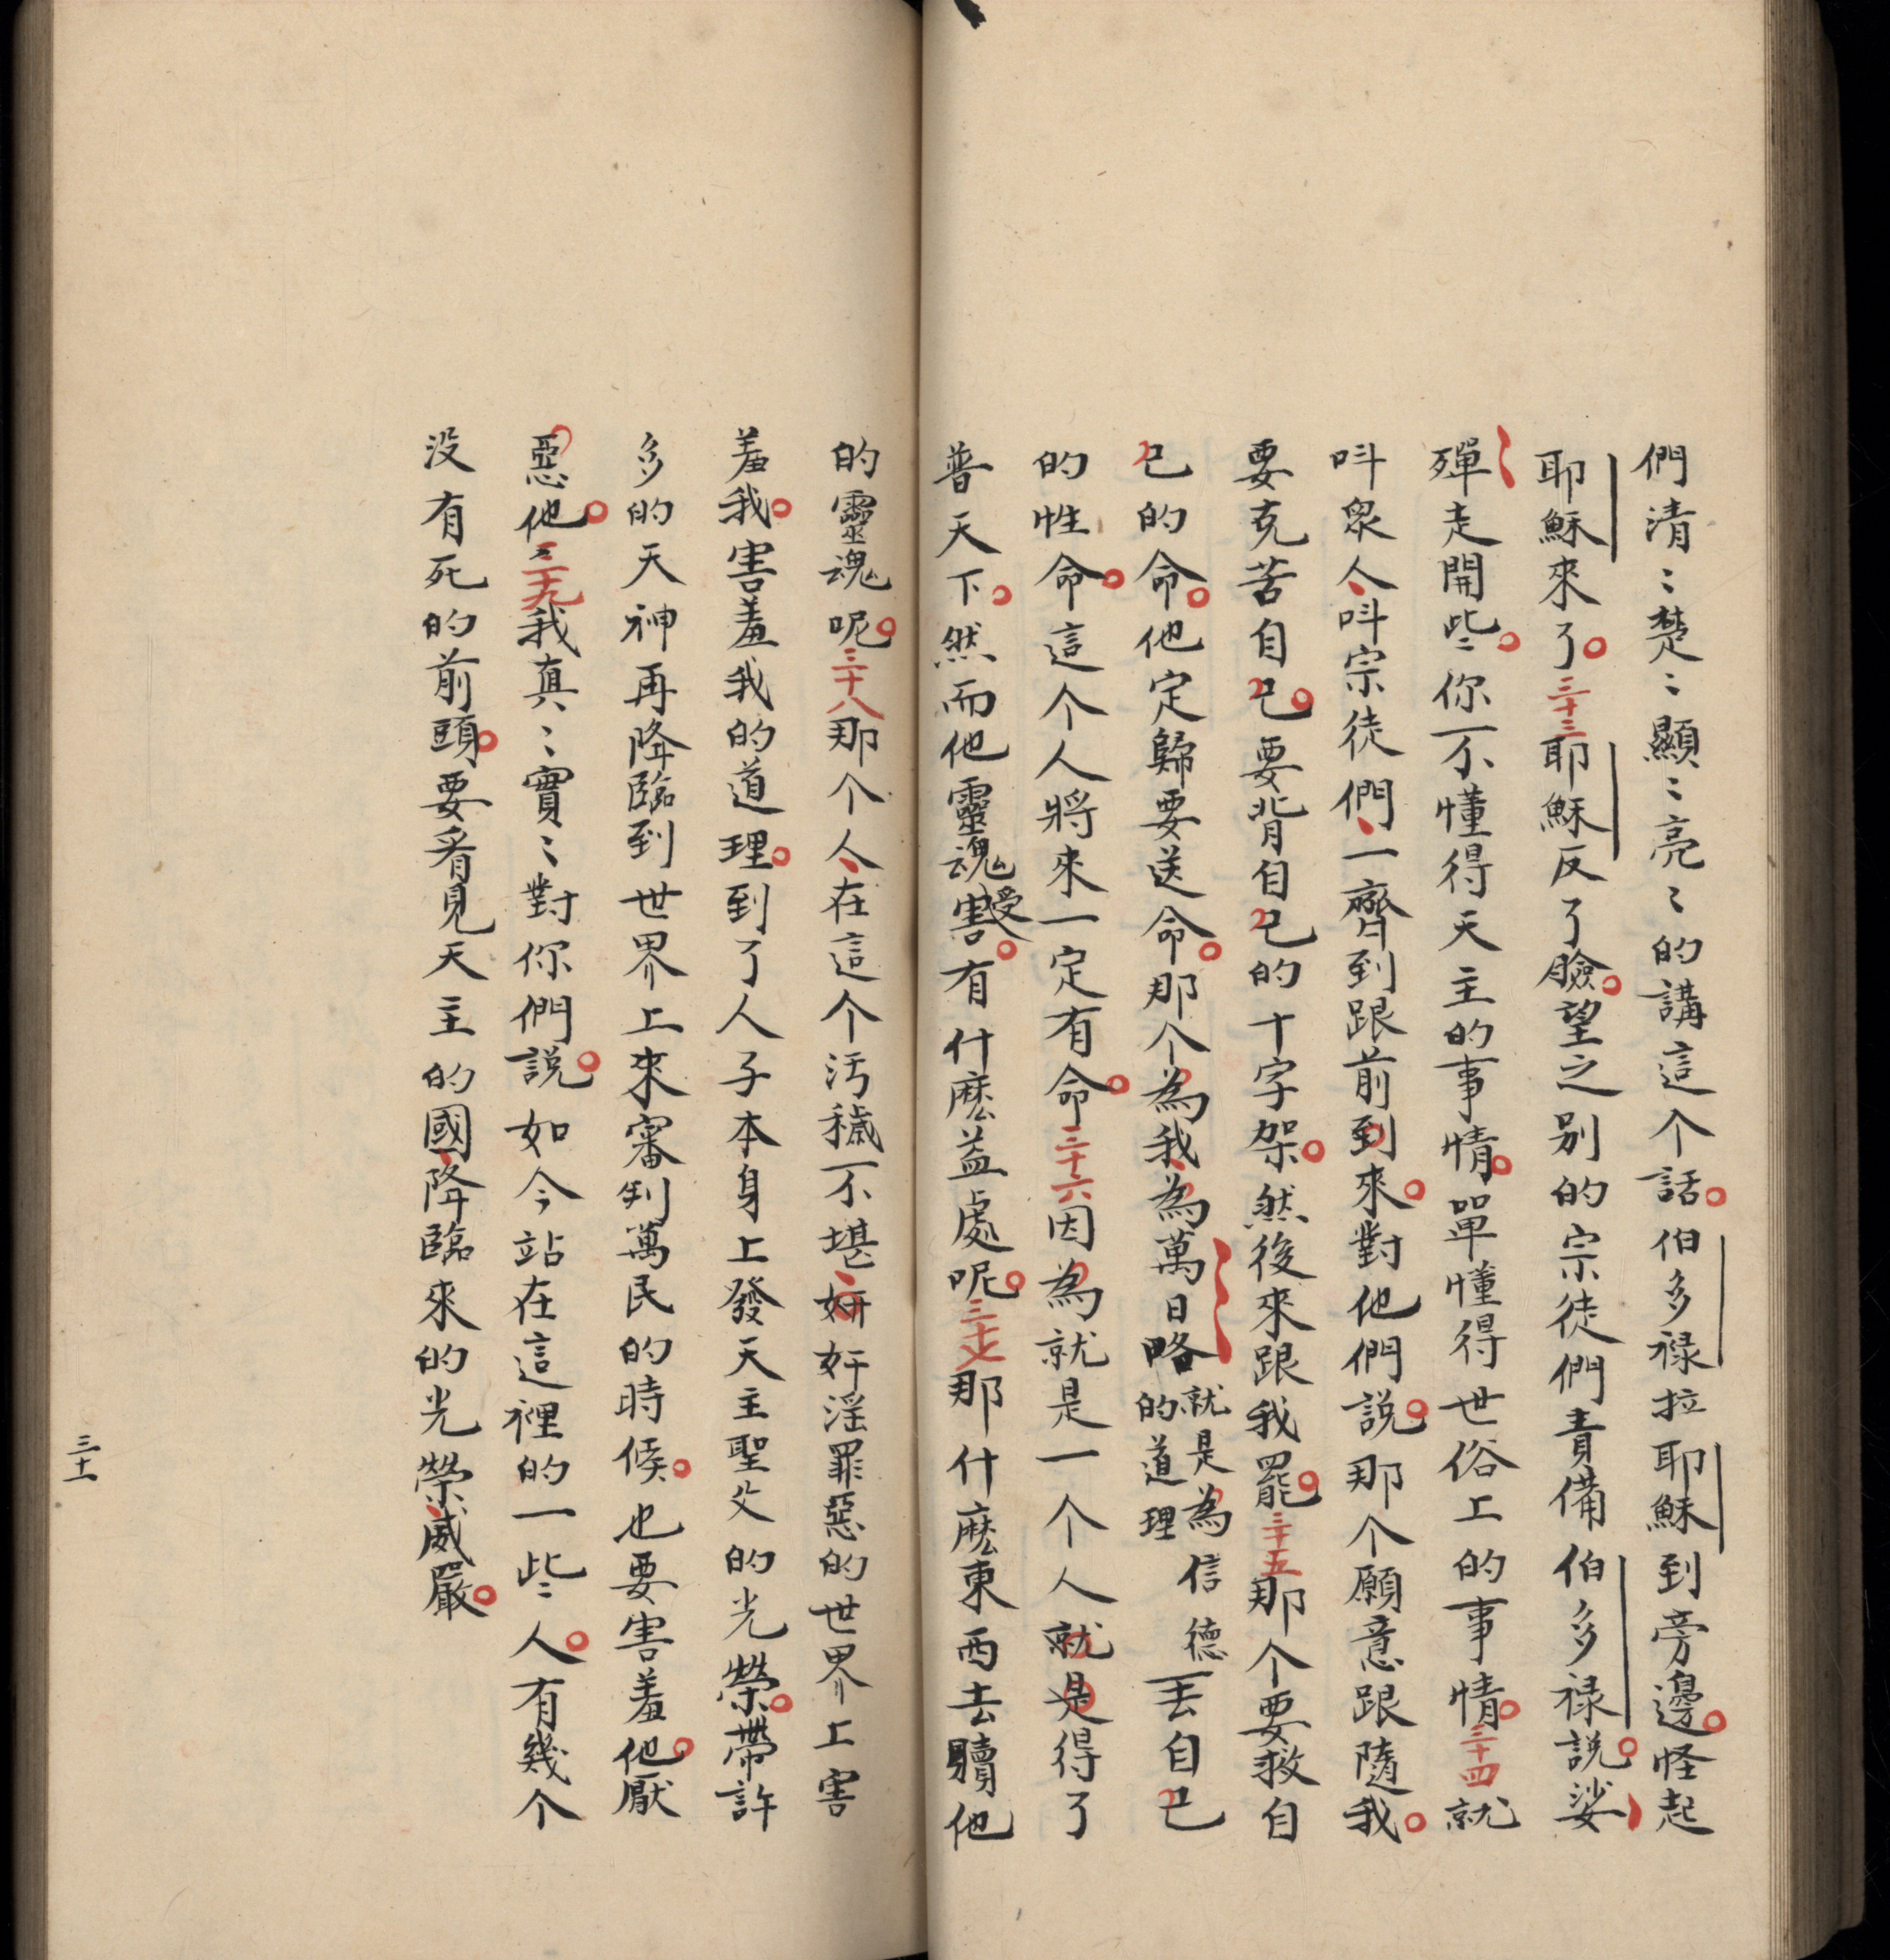 們清〻楚〻顯〻亮〻的講這个話。伯多禄拉耶穌到旁邊。怪起
耶穌來了。三十三耶穌反了臉。望之别的宗徒們責備伯多禄説。娑
殫走開些〻。你不懂得天主的事情。單懂得世俗上的事情。三十四就
呌衆人、呌宗徒們、一齊到跟前到來。對他們説。那个願意跟隨我。
要克苦自己。要背自己的十字架。然後來跟我罷。三十五那个要救自
己的命。他定歸要送命。那个為我、為萬日略就是為信德的道理丟自己
的性命。這个人將來一定有命。三十六因為就是一个人就是得了
普天下。然而他靈魂受害。有什麽益處呢。三十七那什麽東西去贖他
的靈魂呢。三十八那个人、在這个汚穢不堪、姸奸淫罪惡的世界上害
羞我。害羞我的道理。到了人子本身上發天主聖父的光榮。帶許
多的天神再降臨到世界上來審判萬民的時候。也要害羞他。厭
惡他。三十九我真〻實〻對你們説。如今站在這裡的一些〻人。有幾个
没有死的前頭。要看見天主的國、降臨來的光榮、威嚴。
三十一